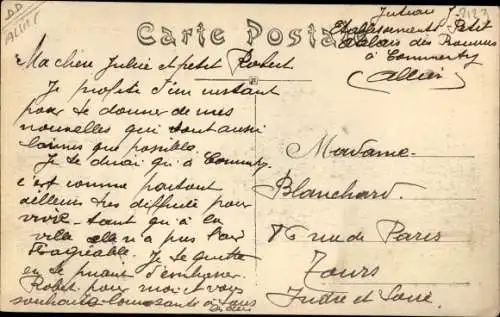 DD
ALLIER
Carte Postale
2123
Etablissements Petit
Palais des Primeurs
à Commentry
(Allier)
Ma chère Julie et petit Robert
Je profite d'un instant
pour te donner de mes
nouvelles qui sont aussi
bonnes que possible.
Je te dirai qu'à Commentry
c'est comme partout
ailleurs très difficile pour
vivre tant qu'à la
ville elle n'a pas l'air
Je te quitte
en te priant d'embrasser
Robert pour moi et vous
souhaite bonne santé à tous
Madame
Blanchard.
rue de Paris
Tours
Indre et Loire